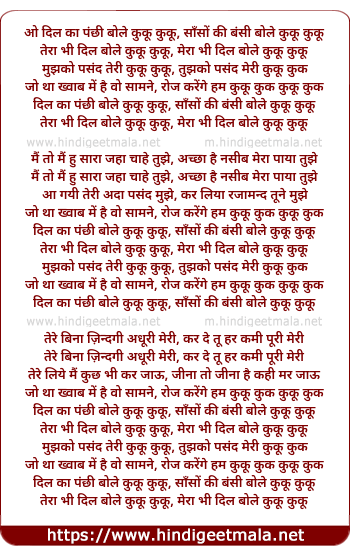 ओ दिल का पंछी बोले कुकू कुकू, साँसों की बंसी बोले कुकू कुकू
तेरा भी दिल बोले कुकू कुकू, मेरा भी दिल बोले कुकू कुकू
मुझको पसंद तेरी कुकू कुकू, तुझको पसंद मेरी कुकू कुक
जो था ख्वाब में है वो सामने, रोज करेंगे हम कुकू कुक कुकू कुक
दिल का पंछी बोले कुकू कुकू, साँसों की बंसी बोले कुकू कुकू
तेरा भी दिल बोले कुकू कुकू, मेरा भी दिल बोले कुकू कुकू
www.hindigeetmala.net m.hindigeetmala.net
मैं तो मैं हु सारा जहा चाहे तुझे, अच्छा है नसीब मेरा पाया तुझे
मैं तो मैं हु सारा जहा चाहे तुझे, अच्छा है नसीब मेरा पाया तुझे
आ गयी तेरी अदा पसंद मुझे, कर लिया रजामन्द तूने मुझे
जो था ख्वाब में है वो सामने, रोज करेंगे हम कुकू कुक कुकू कुक
दिल का पंछी बोले कुकू कुकू, साँसों की बंसी बोले कुकू कुकू
तेरा भी दिल बोले कुकू कुकू, मेरा भी दिल बोले कुकू कुकू
मुझको पसंद तेरी कुकू कुकू, तुझको पसंद मेरी कुकू कुक
जो था ख्वाब में है वो सामने, रोज करेंगे हम कुकू कुक कुकू कुक
दिल का पंछी बोले कुकू कुकू, साँसों की बंसी बोले कुकू कुकू
www.hindigeetmala.net m.hindigeetmala.net
तेरे बिना ज़िन्दगी अधूरी मेरी, कर दे तू हर कमी पूरी मेरी
तेरे बिना ज़िन्दगी अधूरी मेरी, कर दे तू हर कमी पूरी मेरी
तेरे लिये मैं कुछ भी कर जाऊ, जीना तो जीना है कही मर जाऊ
जो था ख्वाब में है वो सामने, रोज करेंगे हम कुकू कुक कुकू कुक
दिल का पंछी बोले कुकू कुकू, साँसों की बंसी बोले कुकू कुकू
तेरा भी दिल बोले कुकू कुकू, मेरा भी दिल बोले कुकू कुकू
मुझको पसंद तेरी कुकू कुकू, तुझको पसंद मेरी कुकू कुक
जो था ख्वाब में है वो सामने, रोज करेंगे हम कुकू कुक कुकू कुक
दिल का पंछी बोले कुकू कुकू, साँसों की बंसी बोले कुकू कुकू
तेरा भी दिल बोले कुकू कुकू, मेरा भी दिल बोले कुकू कुकू
https://www.hindigeetmala.net